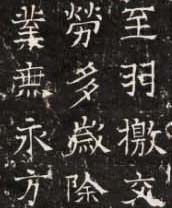 至羽檄交
勞多歲除
業無永方